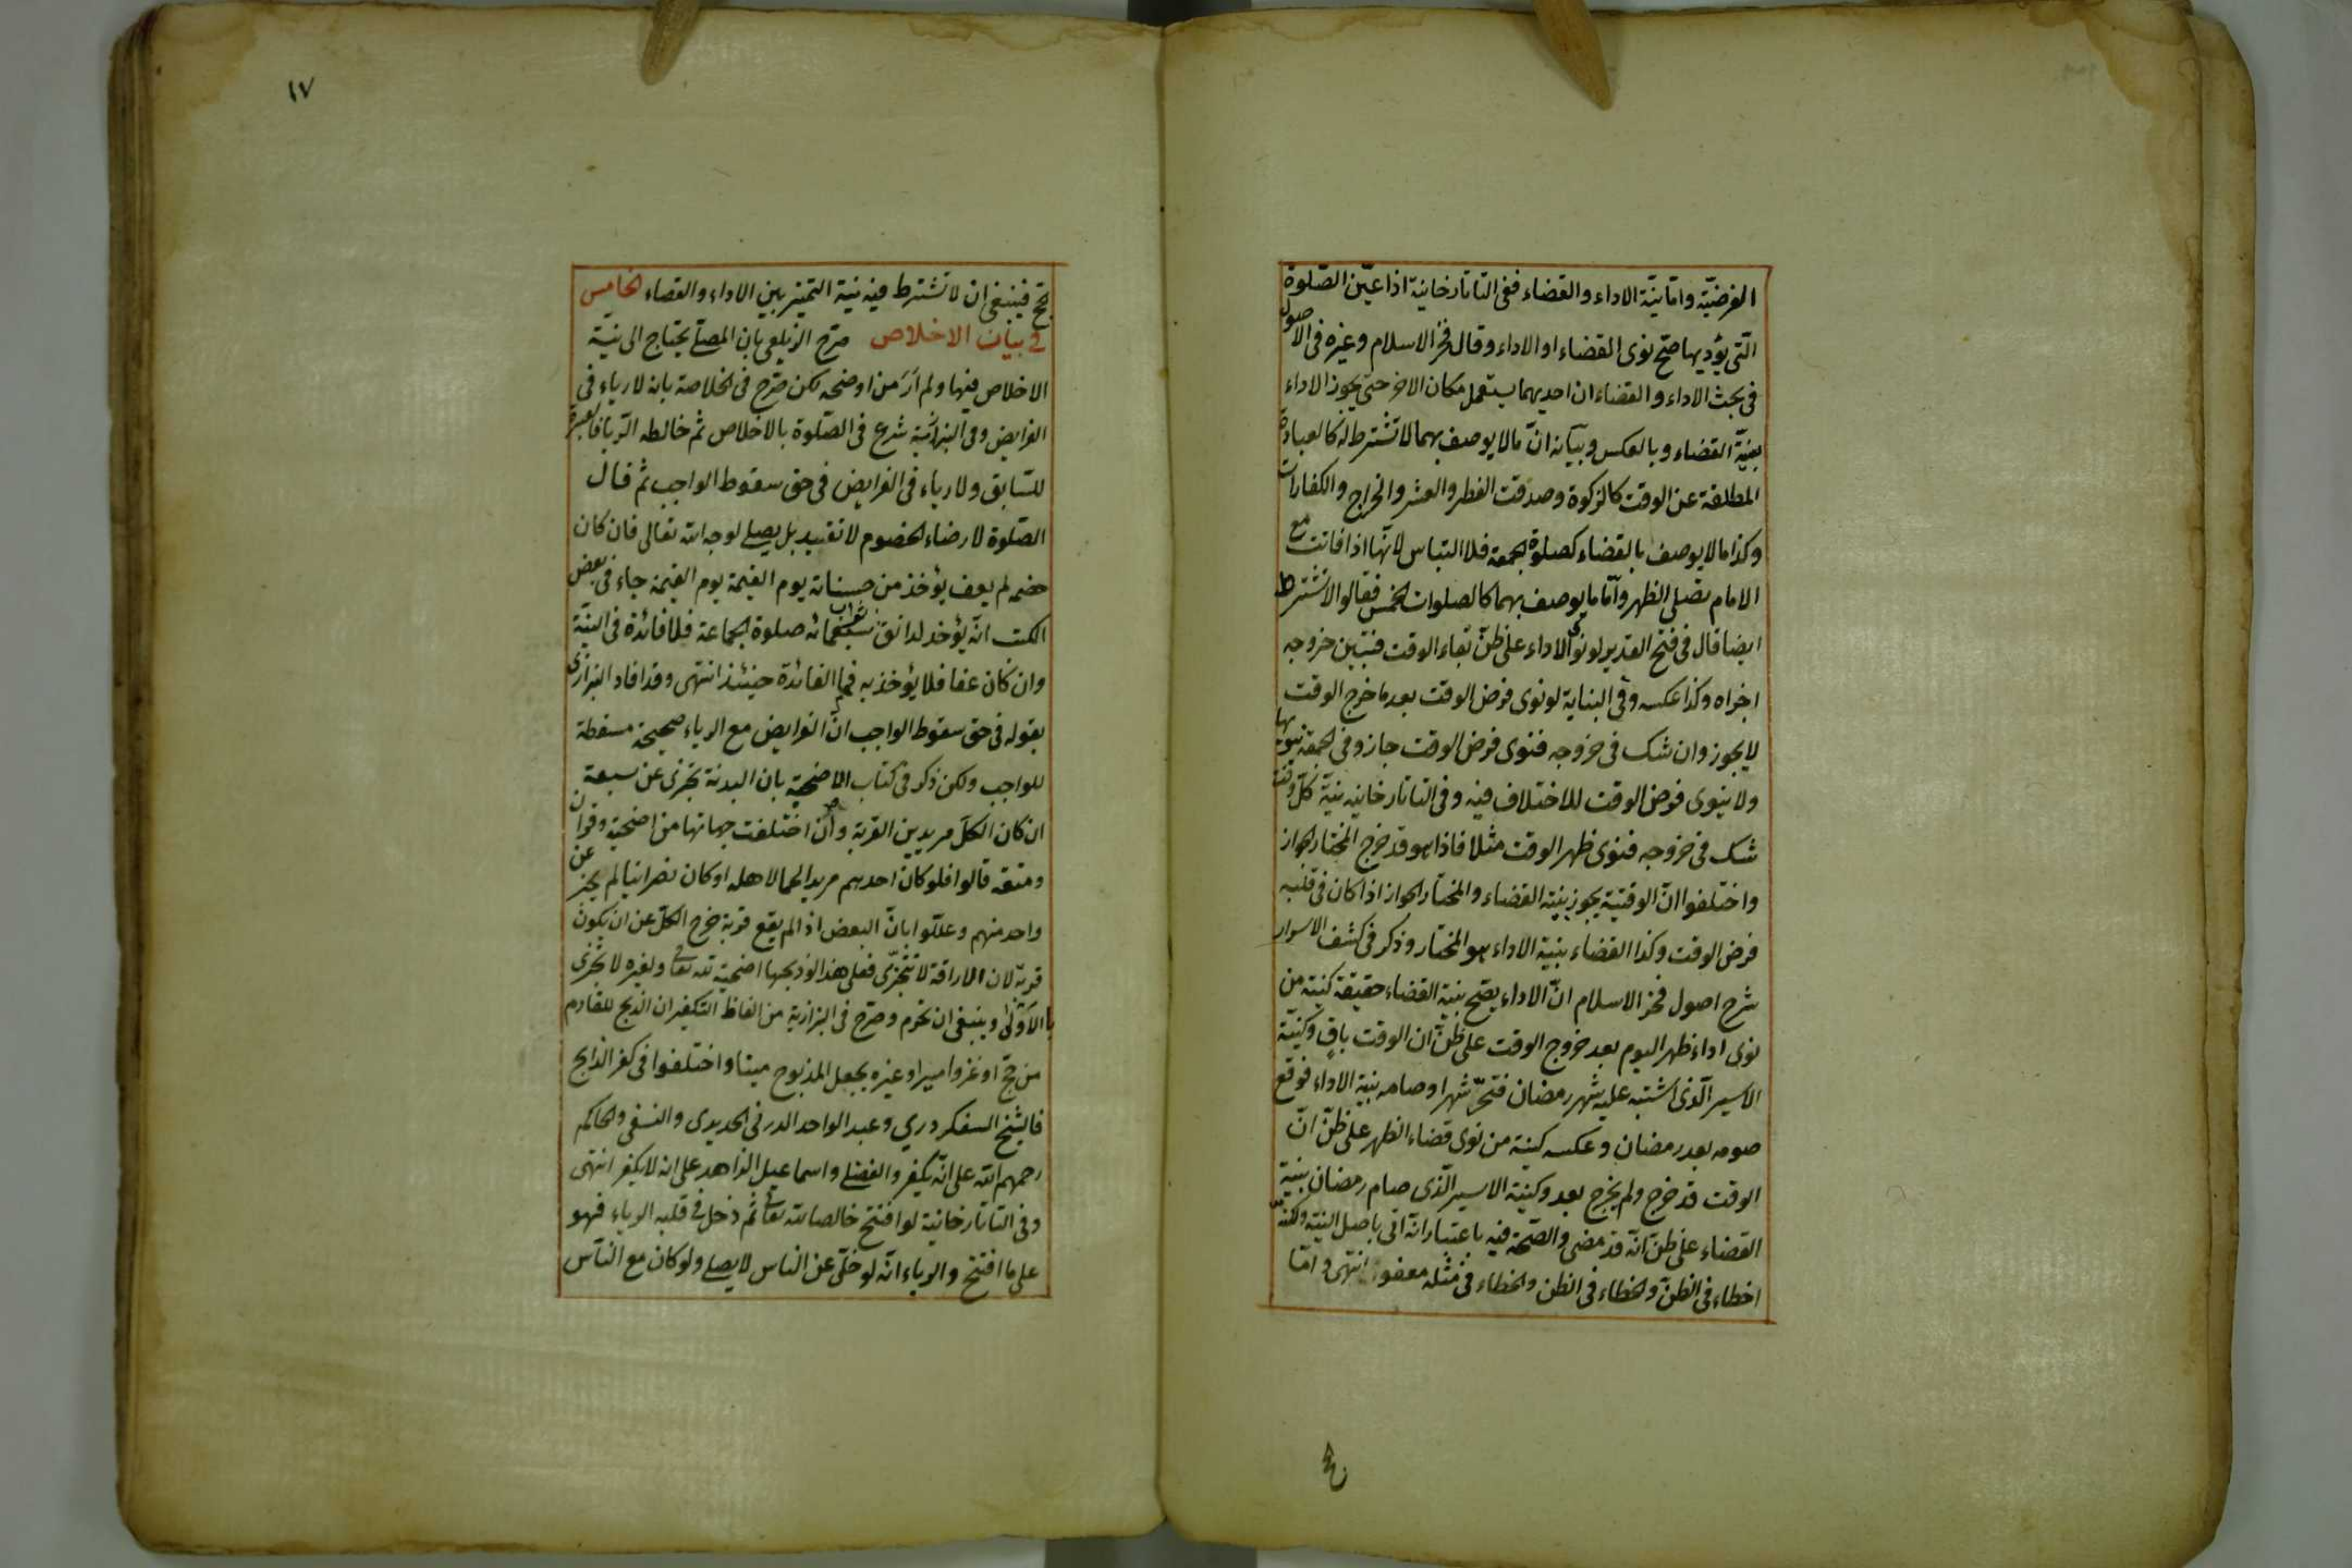 الفرضيّة وامّا نيّة الاداء والقضاء ففى التاتارخانية اذا عيّن الصّلوة
الّتى يؤديها صحّ نوى القضاء او الاداء وقال فخر الاسلام وغيره فى الاصول
فى بحث الاداء والقضاء ان احديهما يستعمل مكان الاخر حتى يجوز الاداء
بنيّة القضاء وبالعكس وبيانه انّ مالا يوصف بهما لا تشترط له كالعبادة
المطلقة عن الوقت كالزكوة وصدقت الفطر والعشر والخراج والكفارات
وكذا مالا يوصف بالقضاء كصلوة الجمعة فلا التباس لانّها اذا فاتت مع
الامام تصلى الظهر وامّا ما يوصف بهما كالصلوات الخمس فقالوا لا تشترط
ايضا قال فى فتح القدير لو نوى الاداء على ظنّ بقاء الوقت فتبين خروجه
اجزاه وكذا عكسه وفى البناية لو نوى فرض الوقت بعد ما خرج الوقت
لا يجوز وان شك فى خروجه فنوى فرض الوقت جاز وفى الجمعة ينويها
ولا ينوى فرض الوقت للاختلاف فيه وفى التاتارخانيه نية كلّ وقت
شك فى خروجه فنوى ظهر الوقت مثلا فاذا هو قد خرج المختار الجواز
واختلفوا انّ الوقتية يجوز بنية القضاء والمختار الجواز اذا كان فى قلبه
فرض الوقت وكذا القضاء بنية الاداء هو المختار وذكر فى كشف الاسرار
شرح اصول فخر الاسلام انّ الاداء يصح بنية القضاء حقيقة كنية من
نوى اداء ظهر اليوم بعد خروج الوقت على ظنّ ان الوقت باقٍ وكنيّة
الاسير الّذى اشتبه عليه شهر رمضان فتحرّ شهرا وصامه بنية الاداء فوقع
صومه بعد رمضان وعكسه كنية من نوى قضاء الظهر على ظنّ انّ
الوقت قد خرج ولم يخرج بعد وكنية الاسير الّذى صام رمضان بنيّة
القضاء على ظنّ انّه قد مضى والصّحة فيه باعتبار انّه اتى باصل النيّة ولكنّه
اخطاء فى الظنّ والخطاء فى الظن والخطاء فى مثله معفو انتهى وامّا
حج
١٧
حج فينبغى ان لا تشترط فيه نيّة التميز بين الاداء والقضاء الخامس
فى بيان الاخلاص صرّح الزيلعى بان المصلّى يحتاج الى نيّة
الاخلاص فيها ولم ارَ من اوضحه لكن صرّح فى الخلاصة بانه لا رياء فى
الفرايض وفى البزازيّة شرع فى الصّلوة بالاخلاص ثم خالطه الريا فالعبرة
للسّابق ولا رياء فى الفرايض فى حق سقوط الواجب ثم قال
الصّلوة لارضاء الخصوم لا تفيد بل يصلى لوجه الله تعالى فان كان
خصمه لم يعف يؤخذ من حسناته يوم القيمة يوم القيمة جاء فى بعض
الكتب انّه يؤخذ لدانق ثواب سبعمائه صلوة الجماعة فلا فائدة فى النيّة
وان كان عفا فلا يؤخذ به فما الفائدة حينئذ انتهى وقد افاد البزازى
بقوله فى حق سقوط الواجب انّ الفرايض مع الرياء صحيحة مسقطة
للواجب ولكن ذكر فى كتاب الاضحية بان البدنة تجزى عن سبعة
ان كان الكلّ مريدين القربة وان اختلفت جهاتها من اضحية وقران
ومتعة قالوا فلو كان احديهم مريد الحما لاهله او كان نصرانيا لم يجز عن
واحد منهم وعللّوا بانّ البعض اذ الم يقع قربة خرج الكلّ عن ان يكون
قربة لان الاراقة لا تتجزّى فعلى هذا لو ذبحها اضحية لله تعالى ولغيره لا تجزى
بالاولى وينبغى ان تحرم وصرّح فى البزازية من الفاظ التكفير ان الذبح للقادم
من حجّ او غزو امير او غيره يجعل المذبوح ميتا واختلفوا فى كفر الذابح
فالشّيخ السفكردري وعبد الواحد الدرفى الحديدى والنسفى والحاكم
رحمهم الله على انّه يكفر والفضلى واسماعيل الزاهد على انه لا يكفر انتهى
وفى التاتارخانية لو افتتح خالصا لله تعالى ثم دخل فى قلبه الرياء فهو
على ما افتتح والرياء انّه لو خلّى عن الناس لا يصلى ولو كان مع النّاس